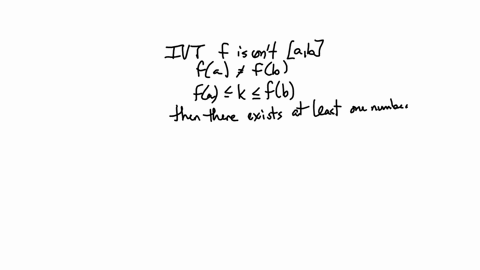 IVT f is con't [a,b]
f(a) ≠ f(b)
f(a) ≤ k ≤ f(b)
then there exists at least one number